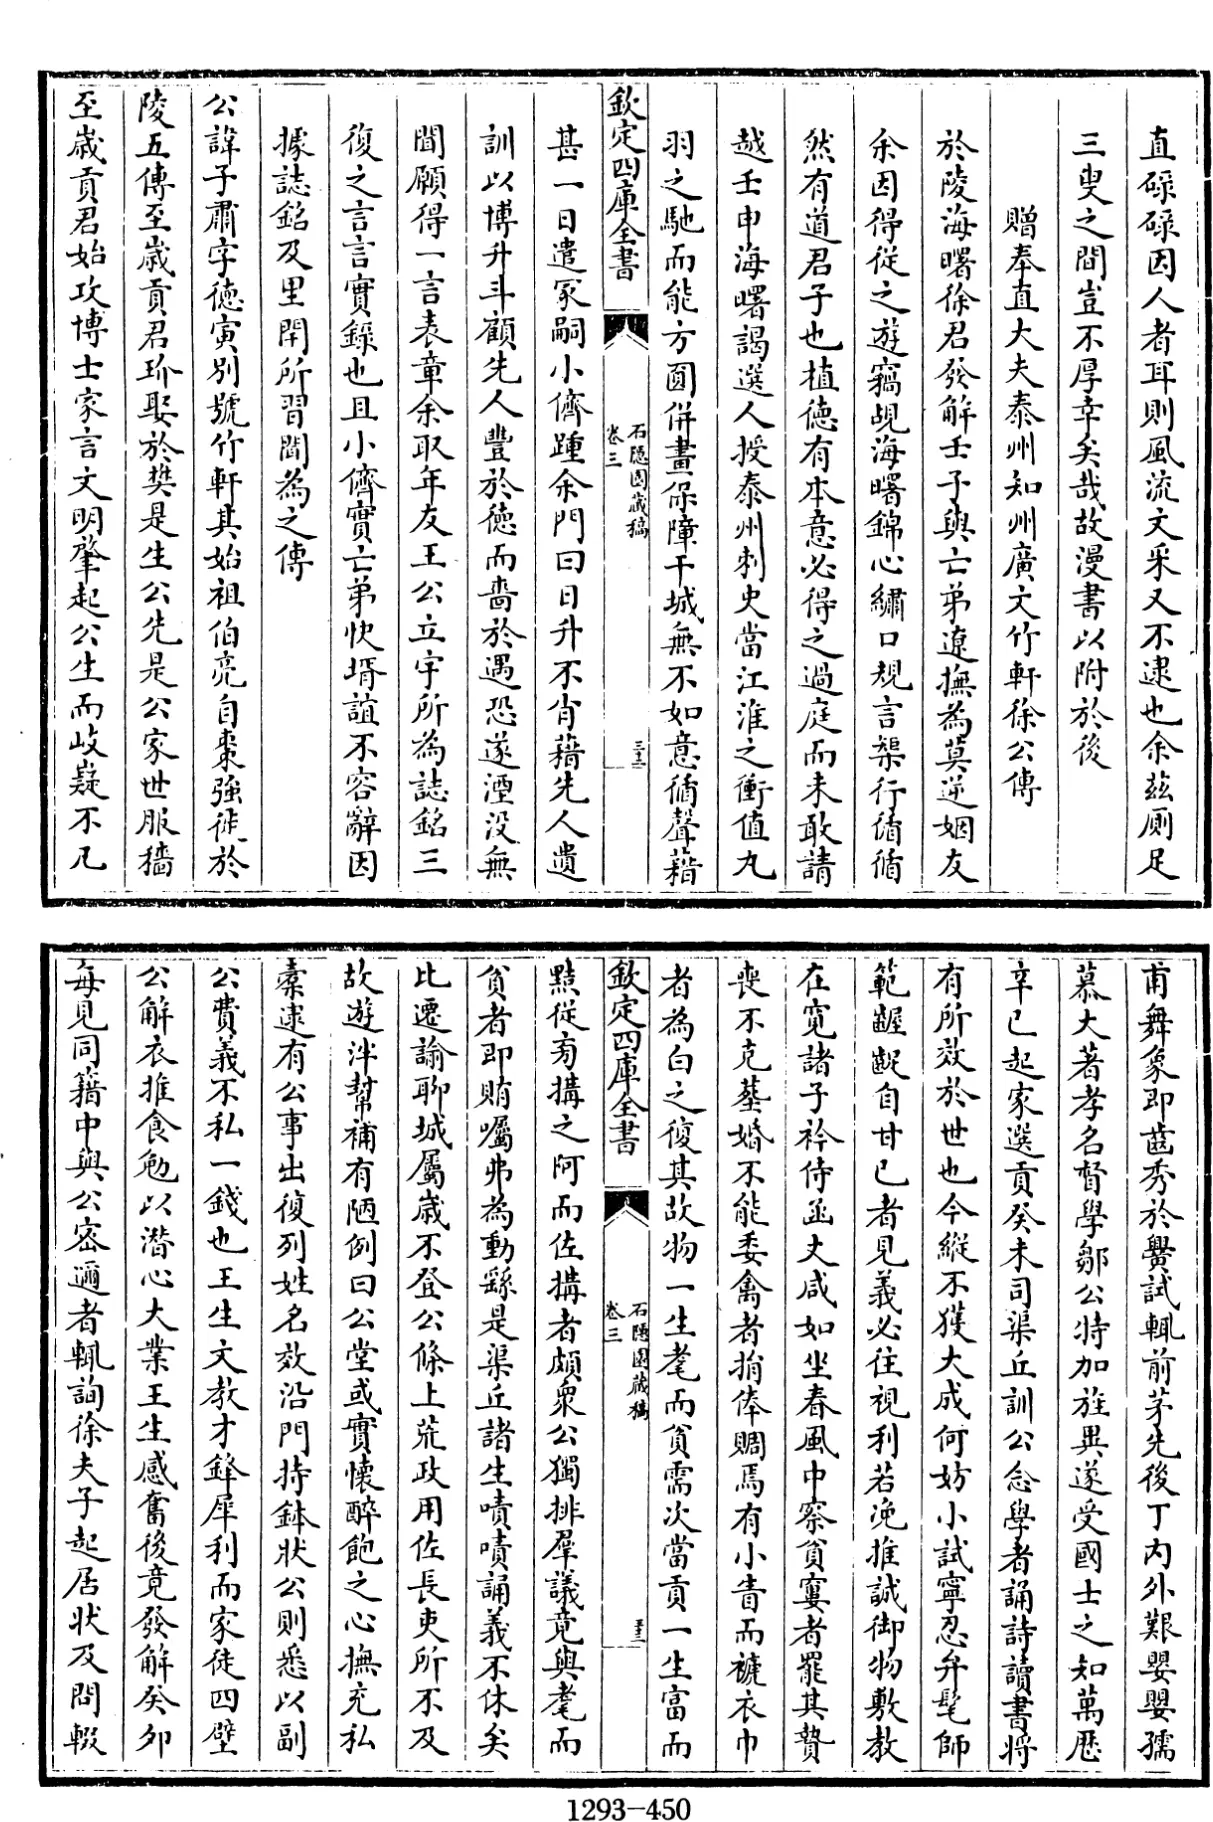 直碌碌因人者耳則風流文采又不逮也余茲厠足
三叟之間豈不厚幸矣哉故漫書以附於後
贈奉直大夫泰州知州廣文竹軒徐公傳
於陵海曙徐君發解壬子與亡弟遼撫為莫逆姻友
余因得從之遊竊覘海曙錦心繡口規言榘行循循
然有道君子也植德有本意必得之過庭而未敢請
越壬申海曙謁選人授泰州刺史當江淮之衝值丸
羽之馳而能方圓併畫保障干城無不如意循聲藉
欽定四庫全書
石隱園藏稿
卷三
三十二
甚一日遣冢嗣小儕踵余門曰日升不肖藉先人遺
訓以博升斗顧先人豐於德而嗇於遇恐遂湮沒無
聞願得一言表章余取年友王公立宇所為誌銘三
復之言言實錄也且小儕實亡弟快壻誼不容辭因
據誌銘及里閈所習聞為之傳
公諱子肅字德寅別號竹軒其始祖伯亮自棗強徙於
陵五傳至歲貢君玠娶於樊是生公先是公家世服穡
至歲貢君始攻博士家言文明肇起公生而岐嶷不凡
甫舞象即茁秀於黌試輒前茅先後丁內外艱嬰嬰孺
慕大著孝名督學鄒公特加旌異遂受國士之知萬歷
辛巳起家選貢癸未司渠丘訓公念學者誦詩讀書將
有所效於世也今縱不獲大成何妨小試寧忍弁髦師
範齷齪自甘已者見義必往視利若浼推誠御物敷教
在寬諸子衿侍函丈咸如坐春風中察貧窶者罷其贄
喪不克塟婚不能委禽者捐俸賙焉有小眚而褫衣巾
者為白之復其故物一生耄而貧需次當貢一生富而
欽定四庫全書
石隱園藏稿
卷三
三十三
黠從旁搆之阿而佐搆者頗衆公獨排羣議竟與耄而
貧者即賄囑弗為動繇是渠丘諸生嘖嘖誦義不休矣
比遷諭聊城屬歲不登公條上荒政用佐長吏所不及
故遊泮幫補有陋例曰公堂或實懷醉飽之心撫充私
橐逮有公事出復列姓名效沿門持鉢狀公則悉以副
公費義不私一錢也王生文教才鋒犀利而家徒四壁
公解衣推食勉以潛心大業王生感奮後竟發解癸卯
每見同籍中與公密邇者輒詢徐夫子起居狀及問輟
1293-450